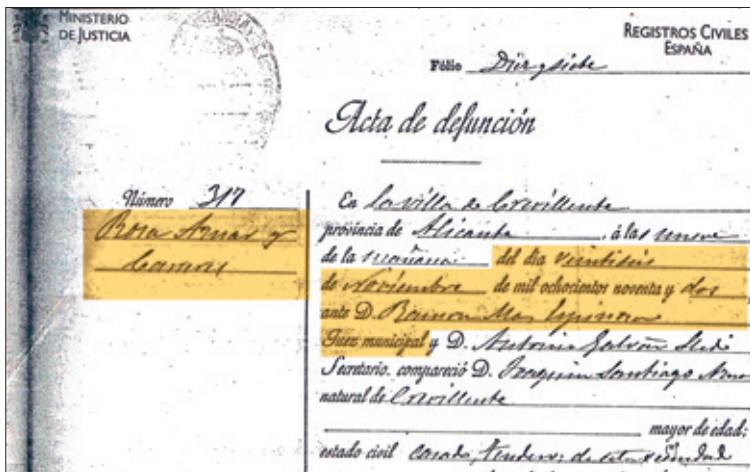 MINISTERIO
DE JUSTICIA
REGISTROS CIVILES
ESPAÑA
Fólio Diez y siete
Acta de defunción
Número 317
Rosa Aznar y
En la villa de Crevillente
provincia de Alicante, á las nueve
de la mañana del dia veintiseis
de Noviembre de mil ochocientos noventa y dos
ante D. Ramon Mas Espinosa
Juez municipal y D. Antonio Galvañ
Secretario, compareció D. Joaquin Santiago
natural de Crevillente
mayor de edad;
estado civil casado,